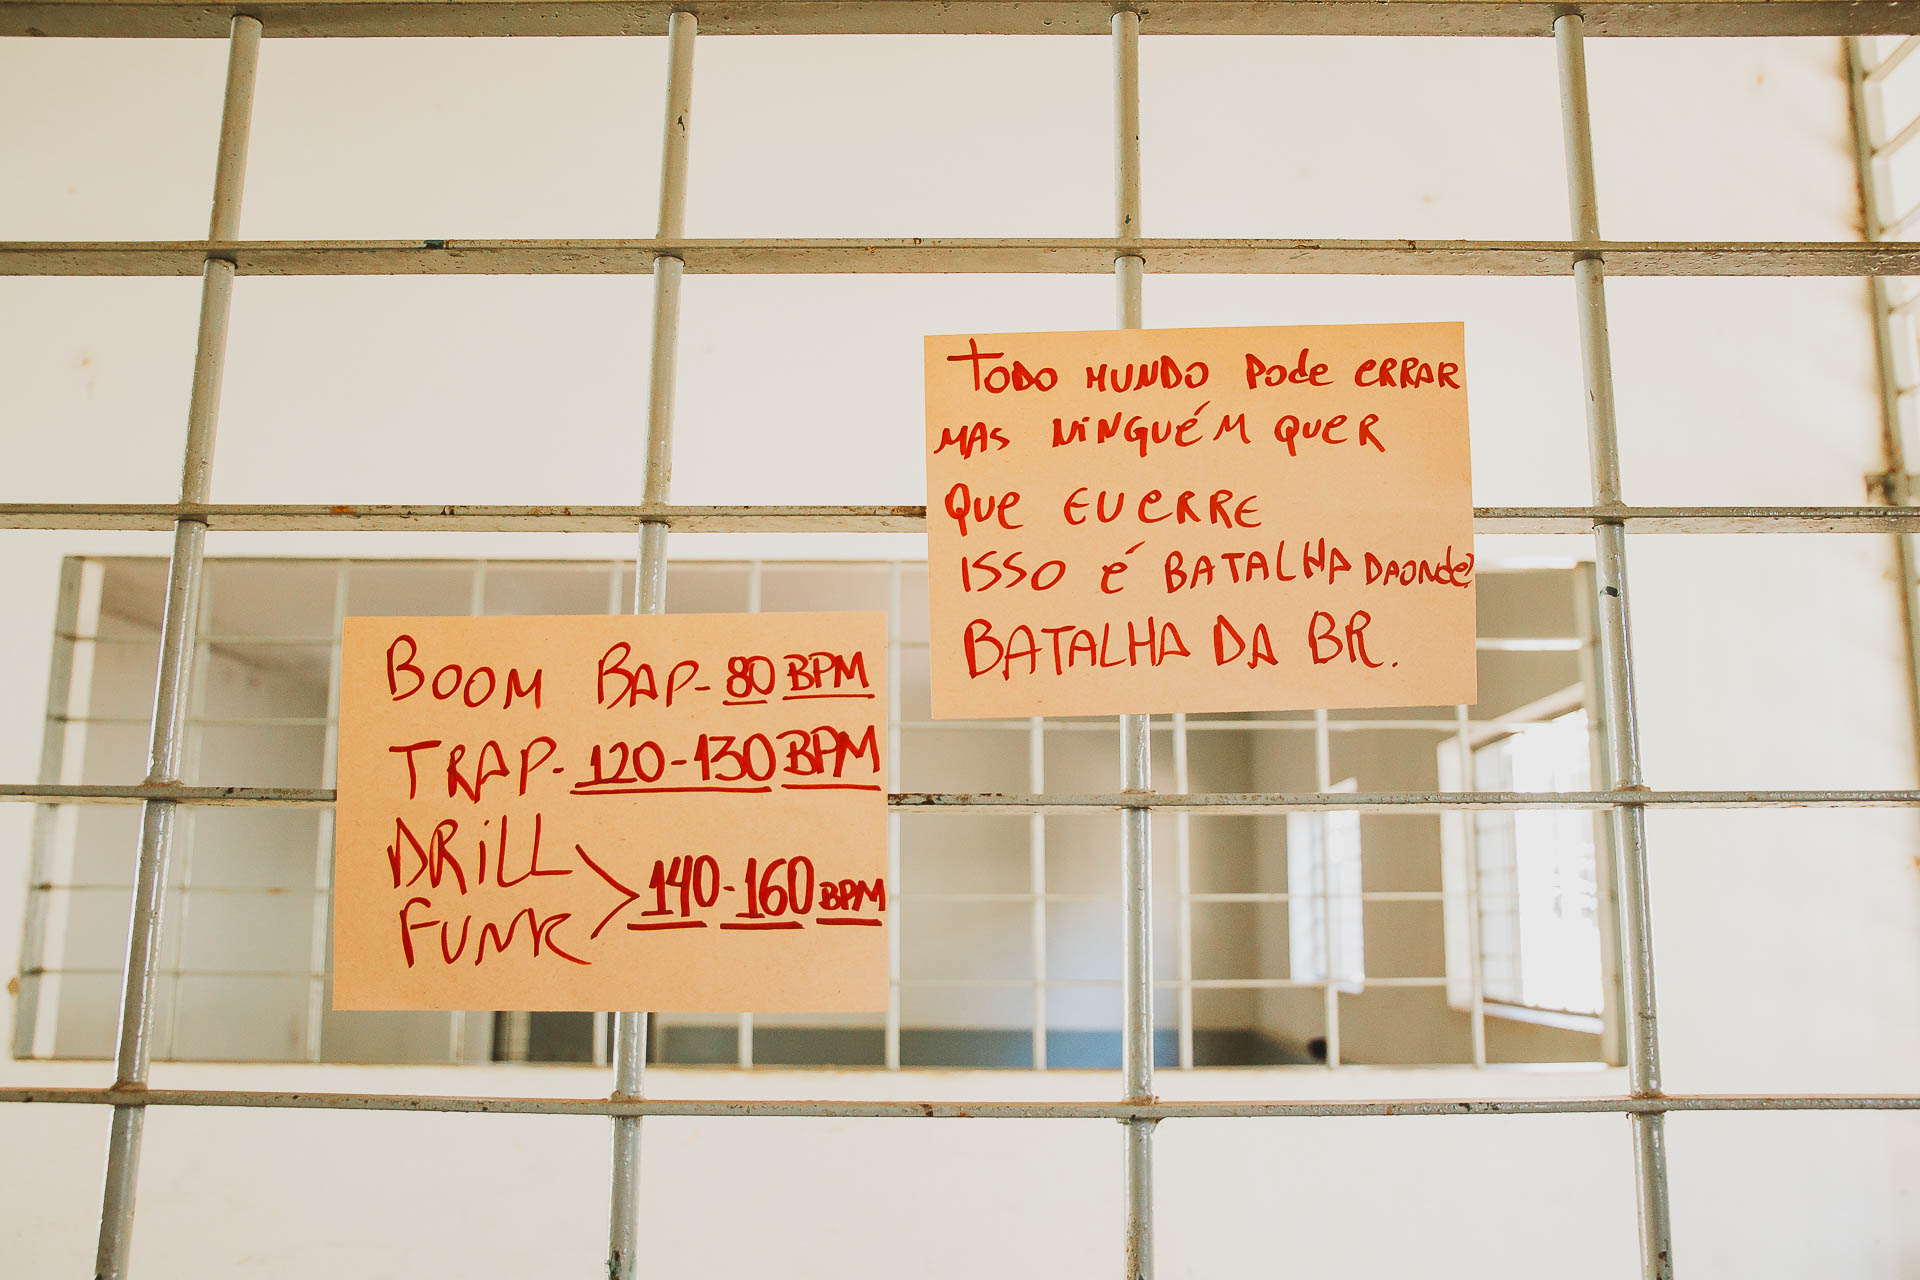 BOOM BAP- 80 BPM
TRAP- 120-130 BPM
DRiLL
FUNK > 140-160 BPM
TODO MUNDO Pode eRRAR
MAS NiNGUÉM QUER
QUe EU eRRE
ISSO é BATALHA DAONde?
BATALHA DA BR.